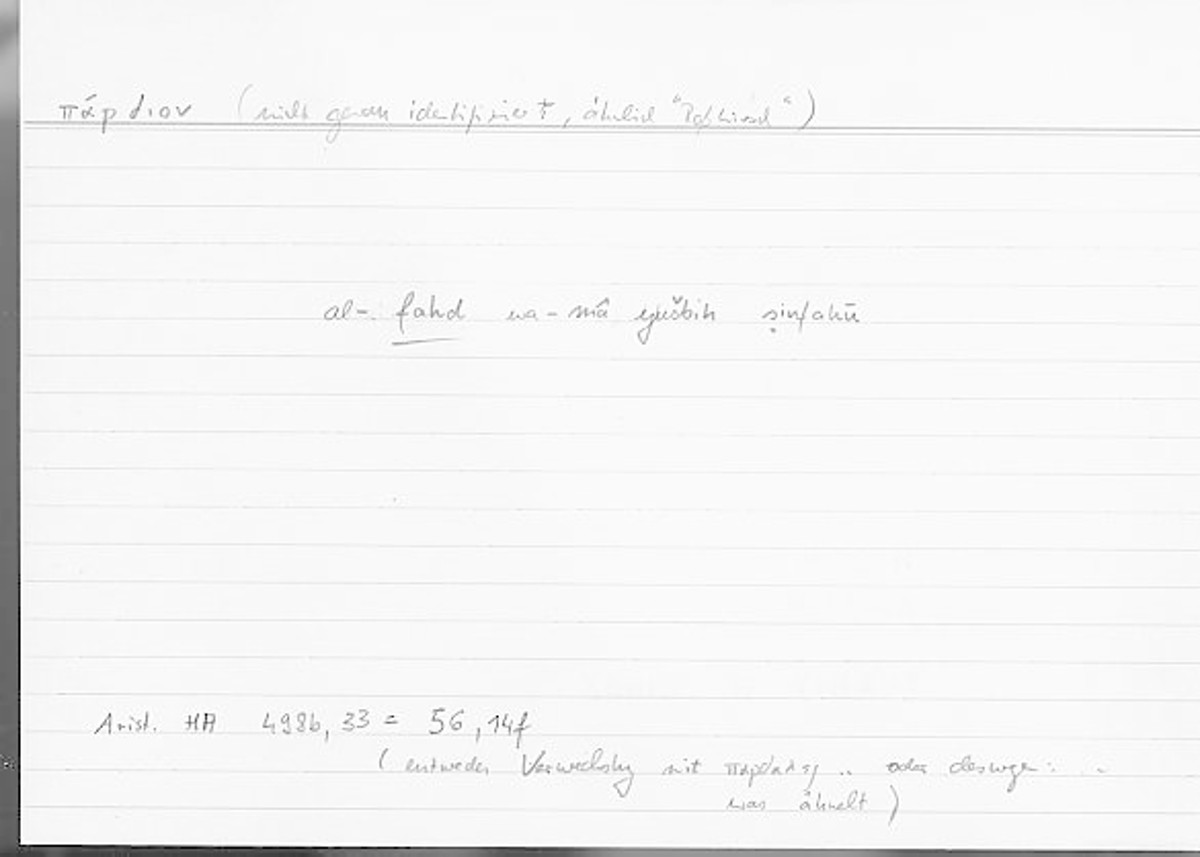 πάρδιον (nicht genau identifiziert, ähnlich "Roßhirsch")
al-fahd wa-mā yušbih ṣinfahū
Arist. HA 498b,33 = 56,14f
(entweder Verwechslg mit πάρδαλις .. oder deswegen: ..
was ähnelt)